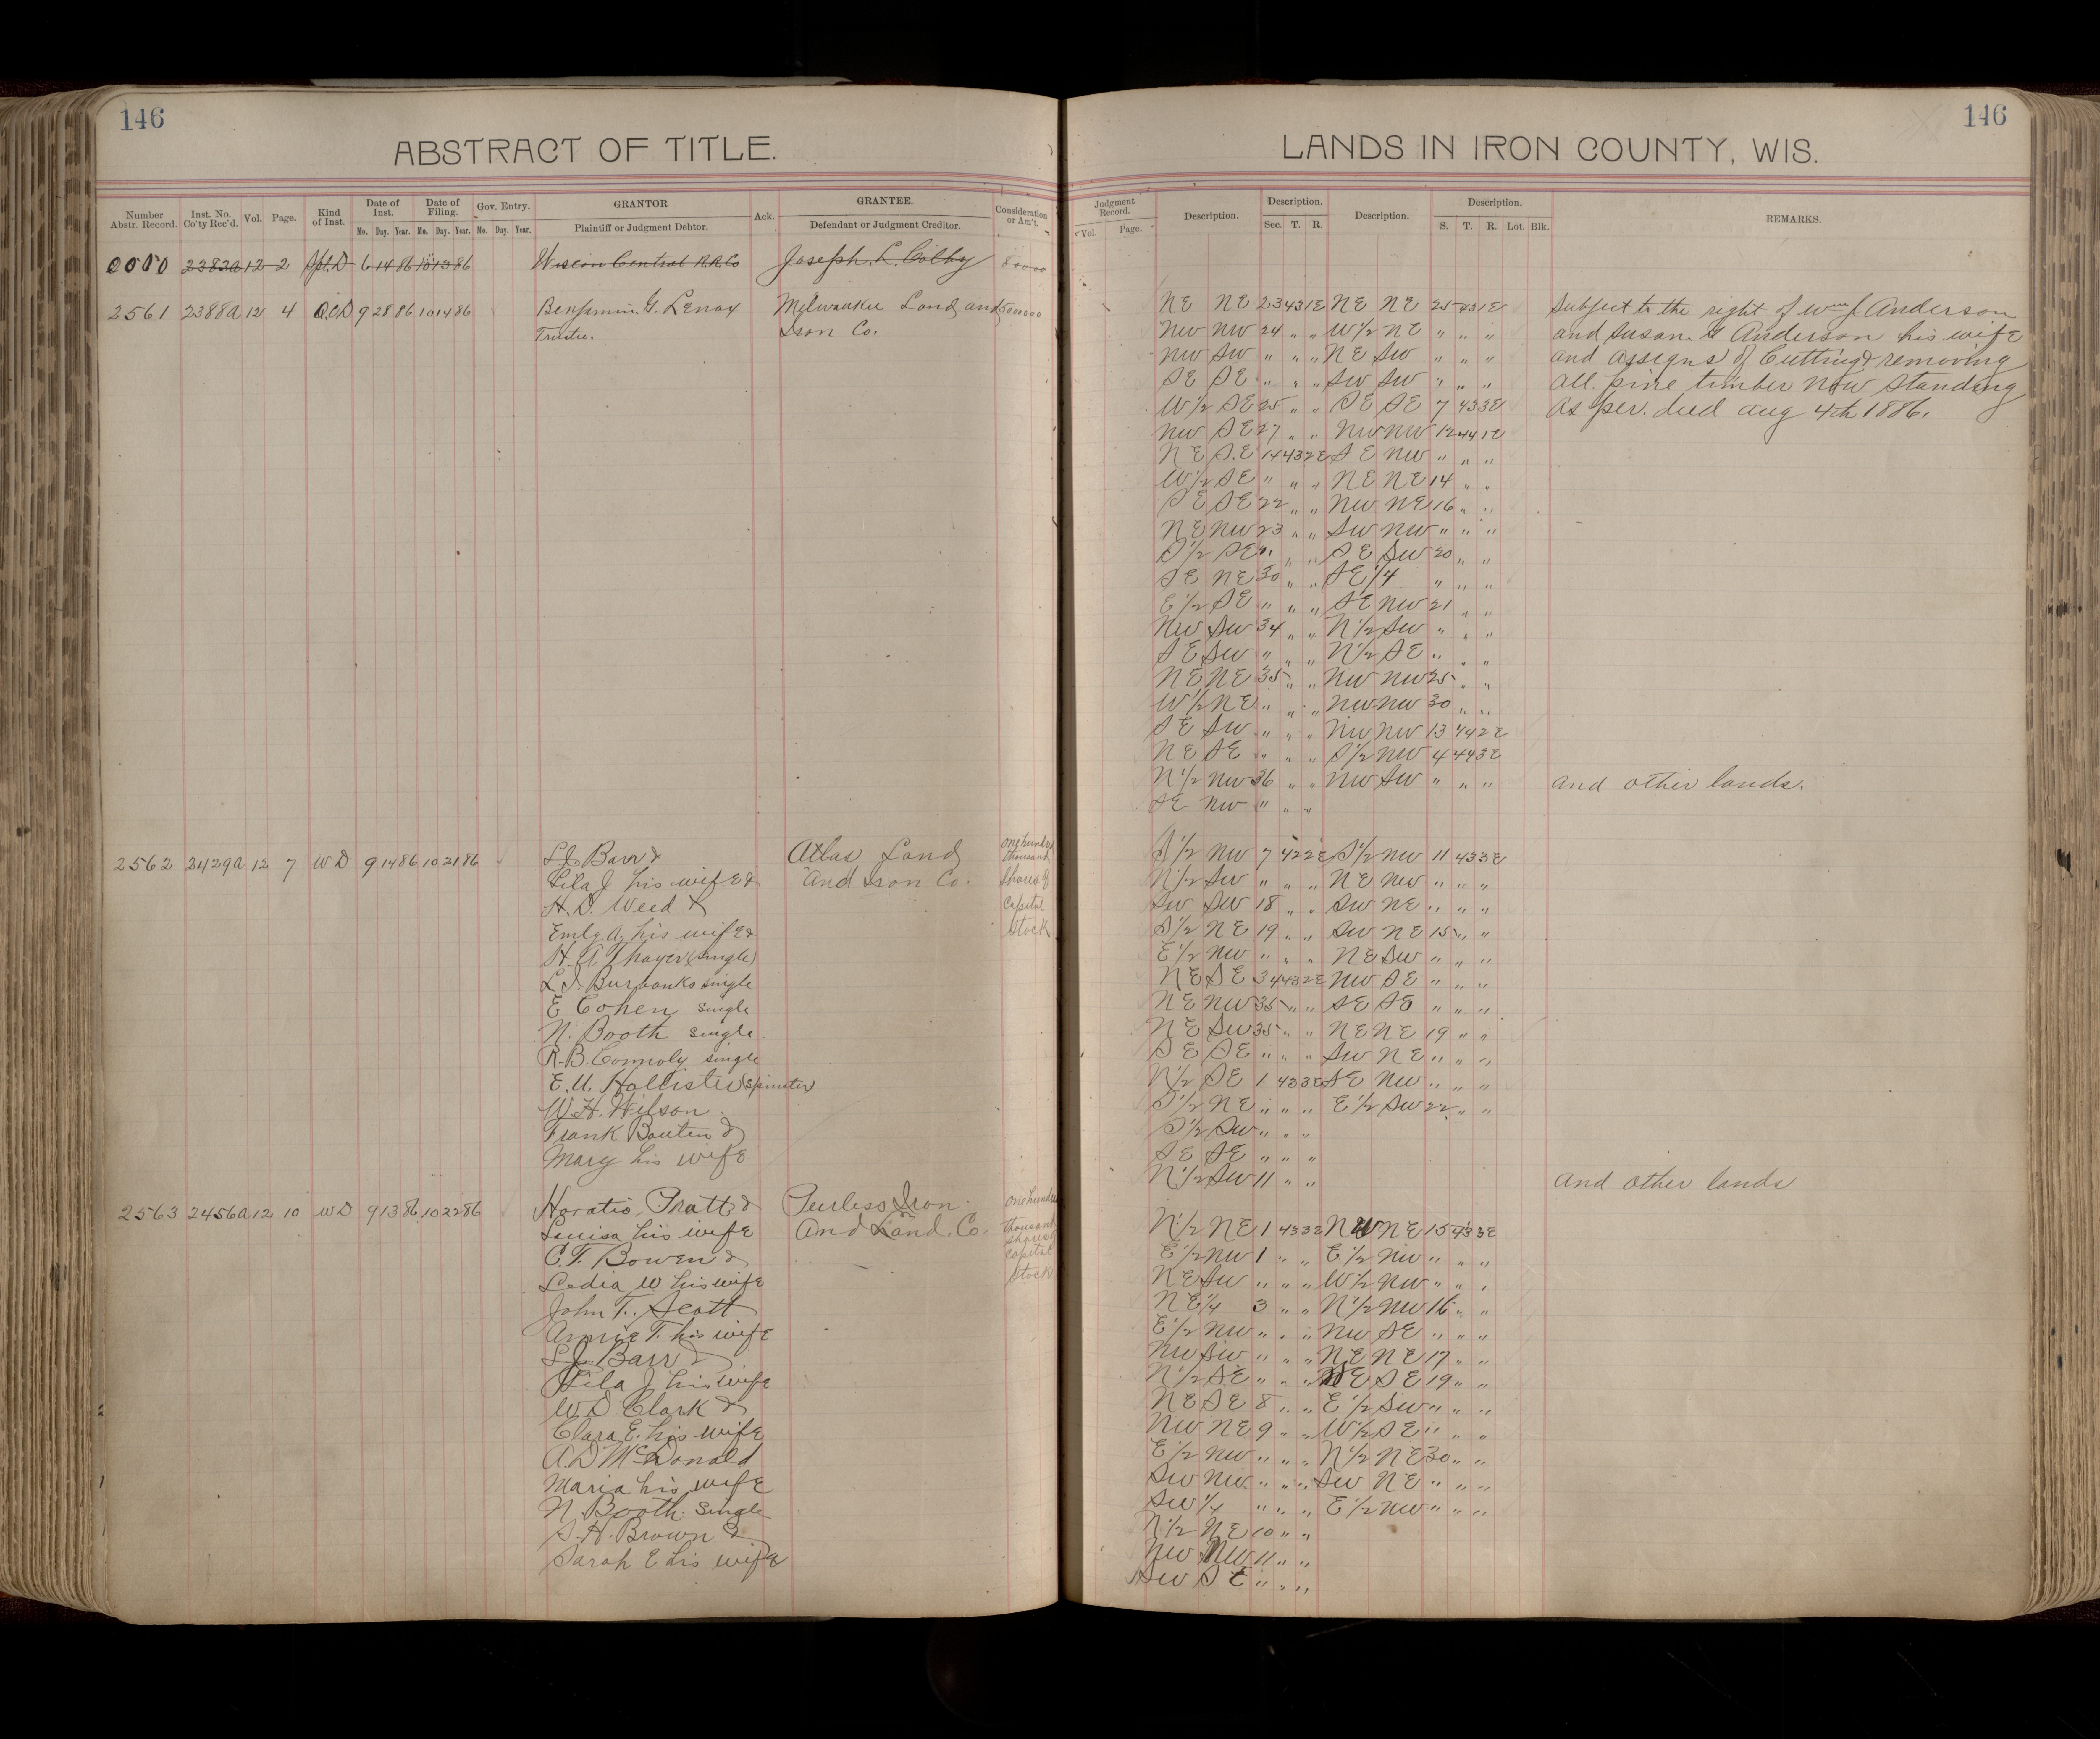 146
ABSTRACT OF TITLE.
Number Abstr. Record. Inst. No. Co'ty Rec'd. Vol. Page. Kind of Inst. Date of Inst. Mo. Day. Year. Date of Filing. Mo. Day. Year. Gov. Entry. Mo. Day. Year. GRANTOR Plaintiff or Judgment Debtor. Ack. GRANTEE. Defendant or Judgment Creditor. Consideration or Am't.
0000 2383a 12 2 Spl. D 6 14 86 10 13 86 Wiscon Central R.R. Co Joseph. L. Colby
2561 2388a 12 4 Q.C.D 9 28 86 10 14 86 Benjamin. G. Lenox Milwaukee Land and 500000
Trustee. Iron Co.
2562 2429a 12 7 W D 9 14 86 10 21 86 L.J. Barr & Atlas Land one hundred thousand
Lila J his wife & And Iron Co. shares of
H.D. Weed & Capital
Emly A, his wife & Stock
H. A Thayer (single)
L.J. Burbanks single
E Cohen single
N. Booth single.
R.B. Connoly single
E.U. Hollister (spinster)
W.H. Wilson
Frank Bouten &
Mary his wife
2563 2456a 12 10 W D 9 13 86 10 22 86 Horatio Pratt & Peerless Iron one hundred
Louisa his wife And Land. Co. thousand
C.T. Bowen & shares of capital
Ledia W his wife Stock
John T. Scott
Annie T. his wife
L.J. Barr &
Lila J his wife
W.D. Clark &
Clara E. his wife
A.D McDonald
Maria his wife
N. Booth. Single
S. H. Brown &
Sarah E his wife
146
LANDS IN IRON COUNTY, WIS.
Judgment Record. Vol. Page. Description. Description. Sec. T. R. Description. Description. S. T. R. Lot. Blk. REMARKS.
NE NE 23 43 1E NE NE 25 43 1E Subject to the right of Wm J. Anderson
NW NW 24 " " W 1/2 NE " " " and Susan. G Anderson his wife
NW SW " " " NE SW " " " and assigns of Cutting & removing
SE SE " " " SW SW " " " all. pine timber now standing
W 1/2 SE 25 " " SE SE 7 43 3E as per. deed aug 4th 1886.
NW SE 27 " " NW NW 12 44 1E
NE S.E 14 43 2E SE NW " " "
W 1/2 SE " " " NE NE 14 " "
SE SE 22 " " NW NE 16 " "
NE NW 23 " " SW NW " " "
S 1/2 SE " " " SE SW 20 " "
SE NE 30 " " SE 1/4 " " "
E 1/2 SE " " " SE NW 21 " "
NW SW 34 " " N 1/2 SW " " "
SE SW " " " N 1/2 SE " " "
NE NE 35 " " NW NW 25 " "
W 1/2 NE " " " NW NW 30 " "
SE SW " " " NW NW 13 44 2E
NE SE " " " S 1/2 NW 4 44 3E
N 1/2 NW 36 " " NW SW " " " and other lands.
SE NW " " "
S 1/2 NW 7 42 2E S 1/2 NW 11 43 3E
N 1/2 SW " " " NE NW " " "
SW SW 18 " " SW NE " " "
S 1/2 NE 19 " " SW NE 15 " "
E 1/2 NW " " " NE SW " " "
NE SE 34 43 2E NW SE " " "
NE NW 35 " " SE SE " " "
NE SW 35 " " NE NE 19 " "
SE SE " " " SW NE " " "
N 1/2 SE 1 43 3E SE NW " " "
S 1/2 NE " " " E 1/2 SW 22 " "
S 1/2 SW " " "
SE SE " " "
N 1/2 SW 11 " " and other lands
N 1/2 NE 1 43 3E NW NE 15 43 3E
E 1/2 NW 1 " " E 1/2 NW " " "
NE SW " " " W 1/2 NW " " "
NE 1/4 3 " " N 1/2 NW 16 " "
E 1/2 NW " " " NW SE " " "
NW SW " " " NE NE 17 " "
N 1/2 SE " " " NE SE 19 " "
NE SE 8 " " E 1/2 SW " " "
NW NE 9 " " W 1/2 SE " " "
E 1/2 NW " " " N 1/2 NE 30 " "
SW NW " " " SW NE " " "
SW 1/4 " " " E 1/2 NW " " "
N 1/2 NE 10 " "
NW NW 11 " "
SW SE " " "